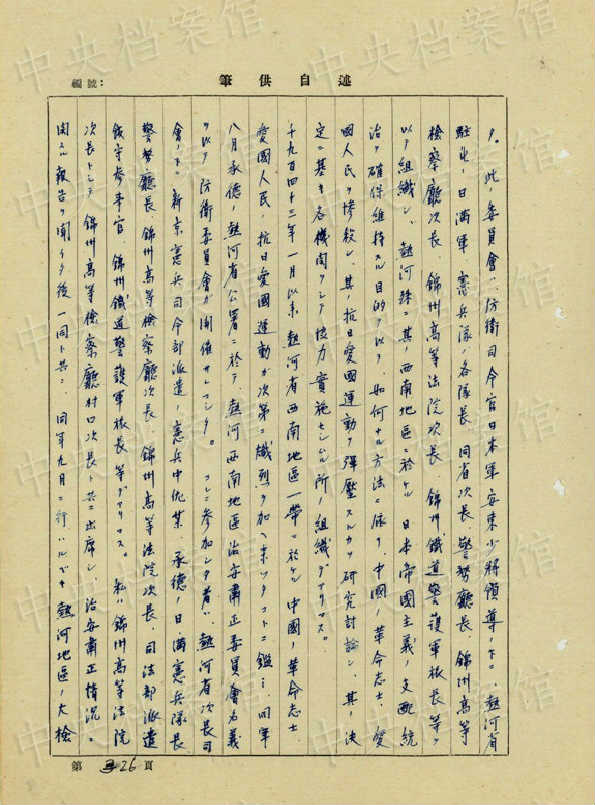 編號：
筆供自述
タ。此ノ委員會ハ防衛司令官日本軍安東少將領導ノ下ニ、熱河省
駐屯ノ日満軍、憲兵隊ノ各隊長、同省次長、警務廳長、錦州高等
檢察廳次長、錦州高等法院次長、錦州鐵道警護軍旅長等ヲ
以テ組織シ、熱河殊ニ其ノ西南地區ニ於ケル日本帝國主義ノ支配統
治ヲ確保維持スル目的ヲ以テ、如何ナル方法ニ依リ、中國ノ革命志士、愛
國人民ヲ惨殺シ、其ノ抗日愛國運動ヲ彈壓スルカヲ研究討論シ、其ノ決
定ニ基キ各機関ヲシテ協力實施セシムル所ノ組織デアリマス。
千九百四十三年一月以來、熱河省西南地區一帶ニ於ケル中國ノ革命志士、
愛國人民ノ抗日愛國運動ガ次第ニ熾烈ヲ加ヘ来ツタコトニ鑑ミ、同年
八月承德ノ熱河省公署ニ於テ、熱河西南地區治安肅正委員會名義
ヲ以テ防衛委員會ガ開催サレマシタ。コレニ參加シタ者ハ、熱河省次長司
會ノ下ニ、新京憲兵司令部派遣ノ憲兵中佐某、承德ノ日満憲兵隊長
警務廳長、錦州高等檢察廳次長、錦州高等法院次長、司法部派遣
錢守參事官、錦州鐵道警護軍旅長等デアリマス。私ハ錦州高等法院
次長トシテ錦州高等檢察廳村口次長ト共ニ出席シ、治安肅正情況ニ
関スル報告ヲ聞イタ後一同ト共ニ、同年九月ニ行ハルベキ熱河地區ノ大檢
第 26 頁
中央档案馆